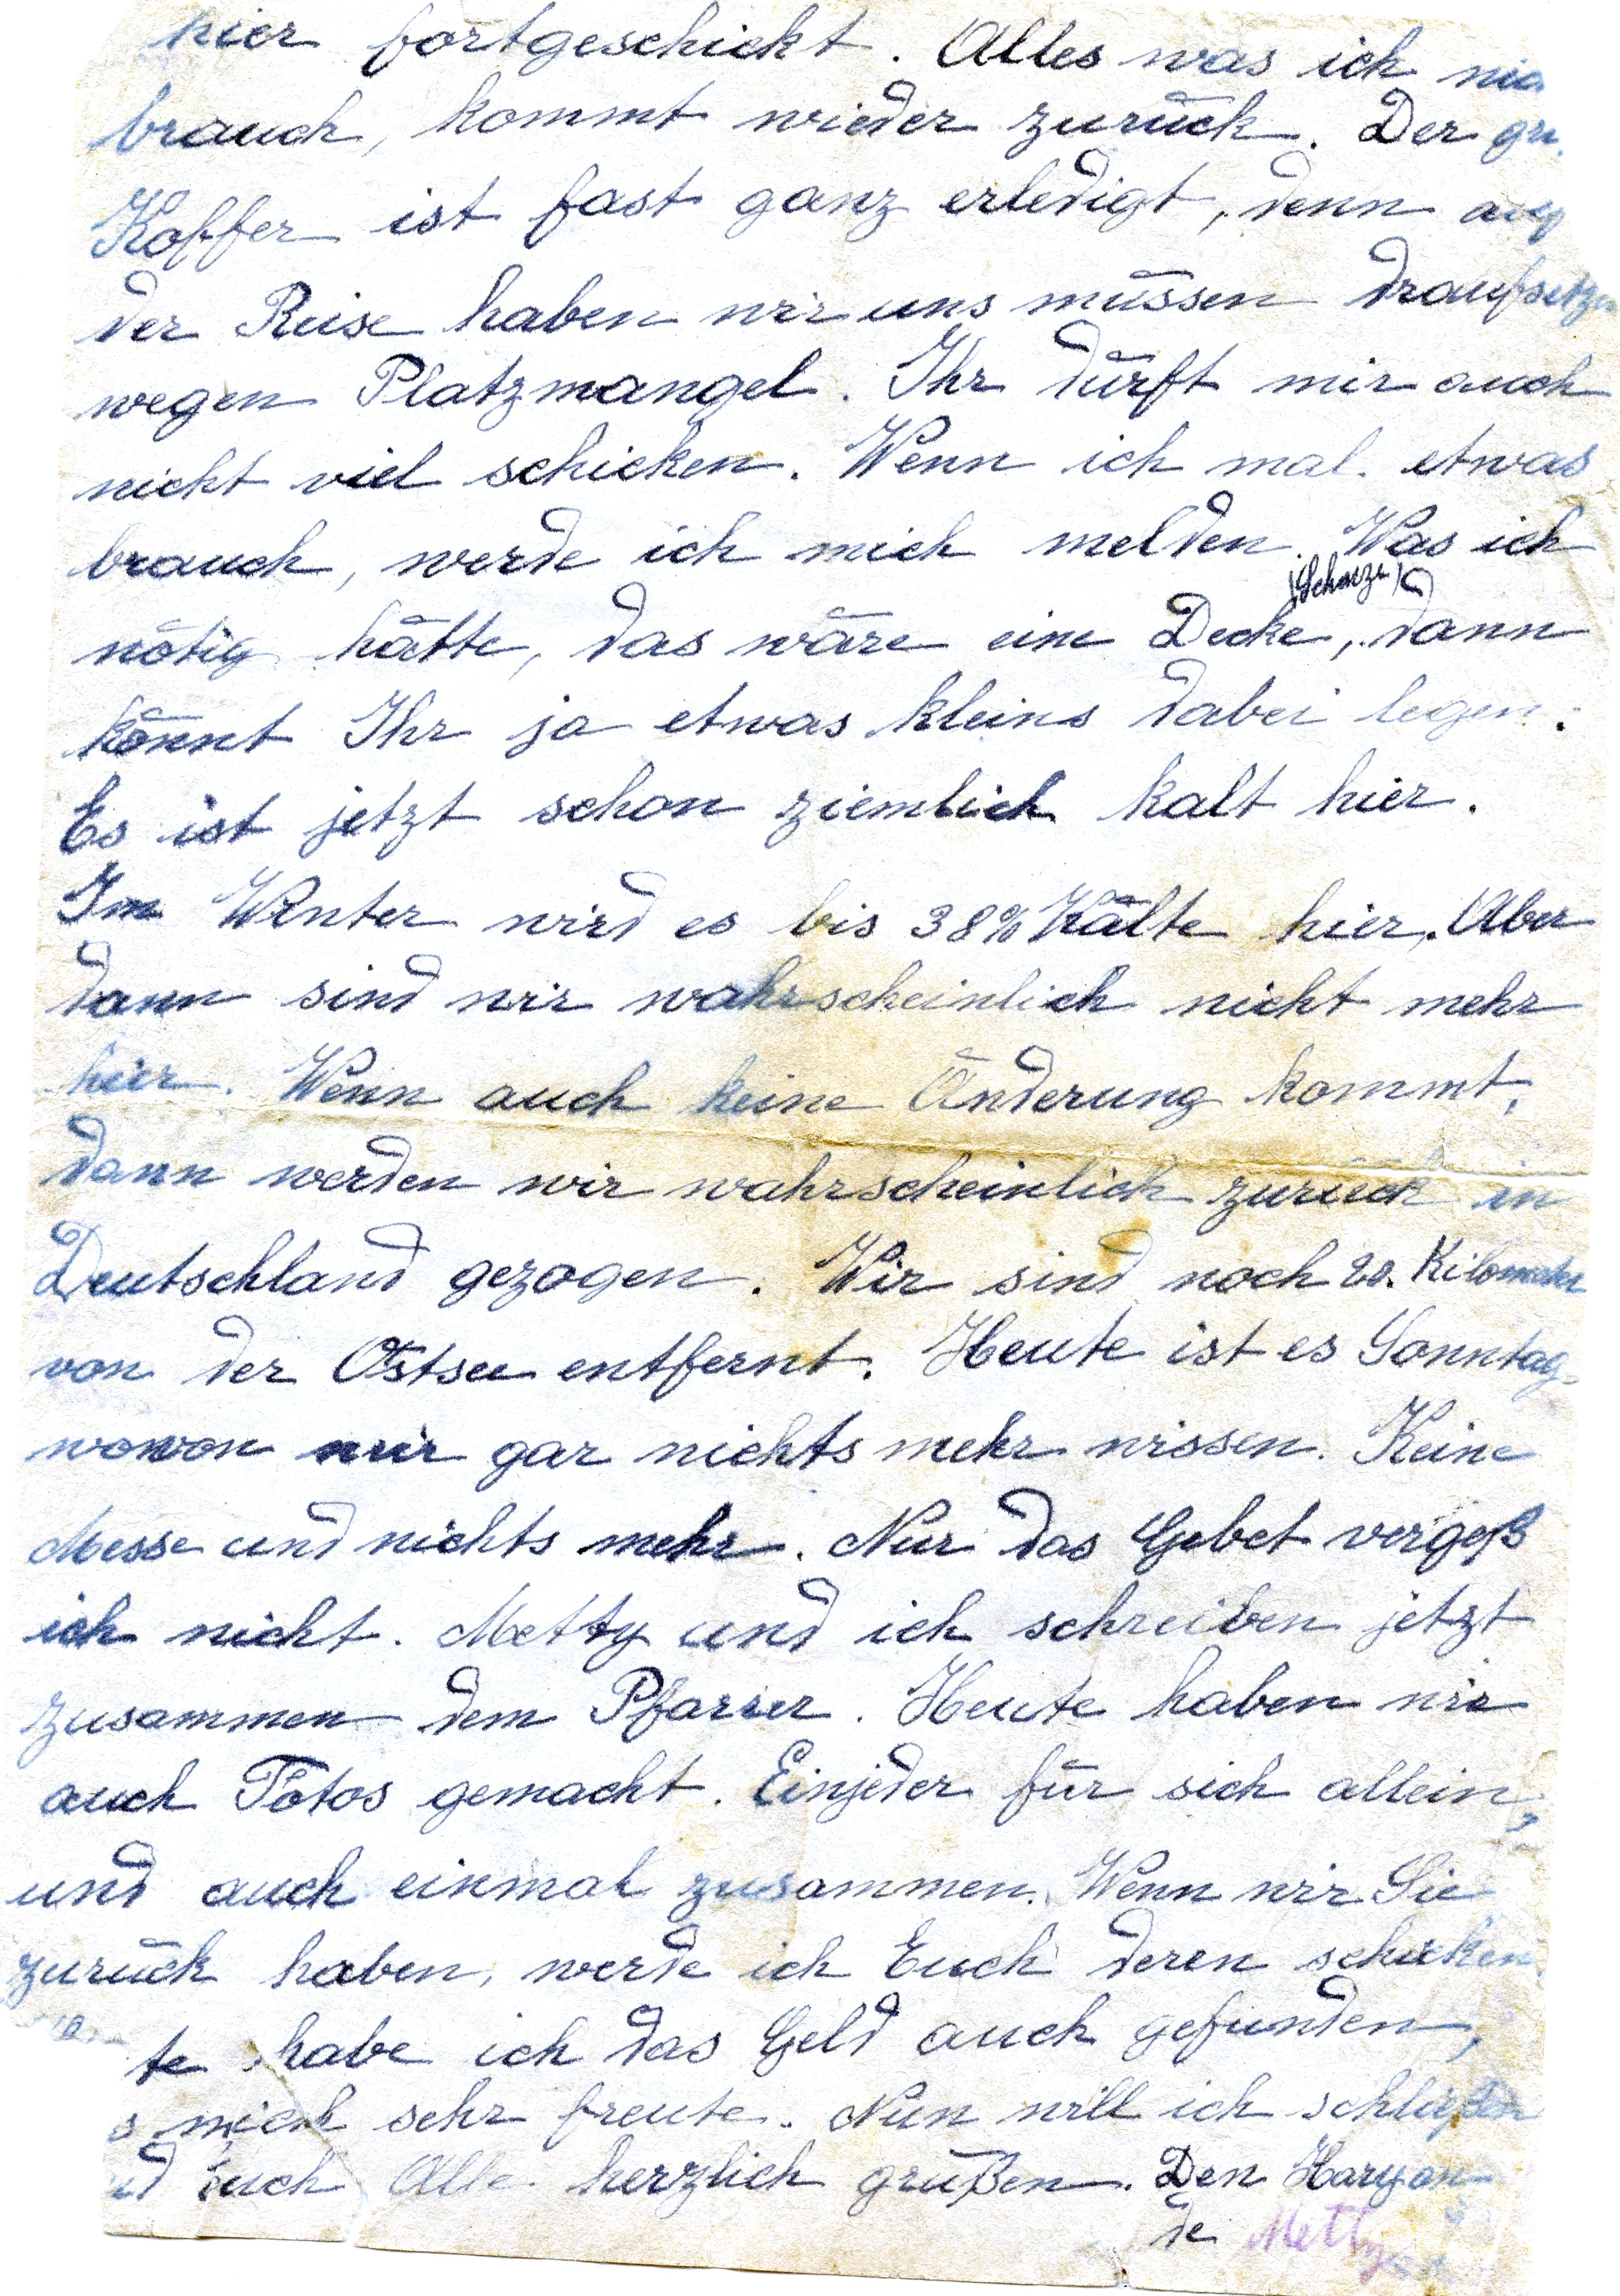 hier fortgeschickt. Alles was ich
brauch, kommt wieder zurück. Der
Koffer ist fast ganz erledigt, denn auf
der Reise haben wir uns müssen draufsetzen
wegen Platzmangel. Ihr dürft mir auch
nicht viel schicken. Wenn ich mal etwas
brauch, werde ich mich melden. Was ich
nötig hätte, das wäre eine Decke, dann
könnt Ihr ja etwas kleins dabei legen.
Es ist jetzt schon ziemlich kalt hier.
Im Winter wird es bis 38% Kälte hier. Aber
dann sind wir wahrscheinlich nicht mehr
hier. Wenn auch keine Änderung kommt,
dann werden wir wahrscheinlich zurück in
Deutschland gezogen. Wir sind noch 20. Kilometer
von der Ostsee entfernt. Heute ist es Sonntag
wovon wir gar nichts mehr wissen. Keine
Messe und nichts mehr. Nur das Gebet vergeß
ich nicht. Metty und ich schreiben jetzt
zusammen dem Pfarrer. Heute haben wir
auch Fotos gemacht. Einjeder für sich allein,
und auch einmal zusammen. Wenn wir Sie
zurück haben, werde ich Euch deren schicken
te habe ich das Geld auch gefunden,
s mich sehr freute. Nun will ich schließen
d Euch Alle herzlich grüßen. Den Hary an
de Metty